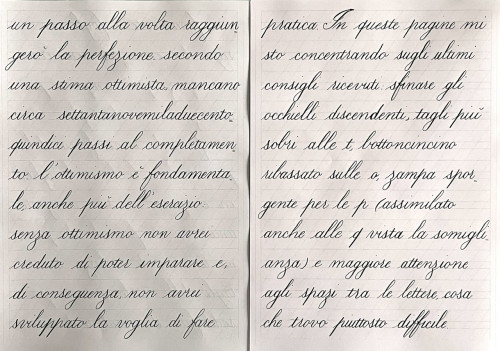 un passo alla volta raggiun,
gerò la perfezione secondo
una stima ottimista, mancano
circa settantanovemiladuecento,
quindici passi al completamen,
to l'ottimismo è fondamenta,
le, anche più dell'esercizio:
senza ottimismo non avrei
creduto di poter imparare e,
di conseguenza, non avrei
sviluppato la voglia di fare
pratica. In queste pagine mi
sto concentrando sugli ultimi
consigli ricevuti: sfinare gli
occhielli discendenti, tagli più
sobri alle t, bottoncincino
ribassato sulle o, zampa spor,
gente per le p (assimilato
anche alle q vista la somigli,
anza) e maggiore attenzione
agli spazi tra le lettere, cosa
che trovo piuttosto difficile.